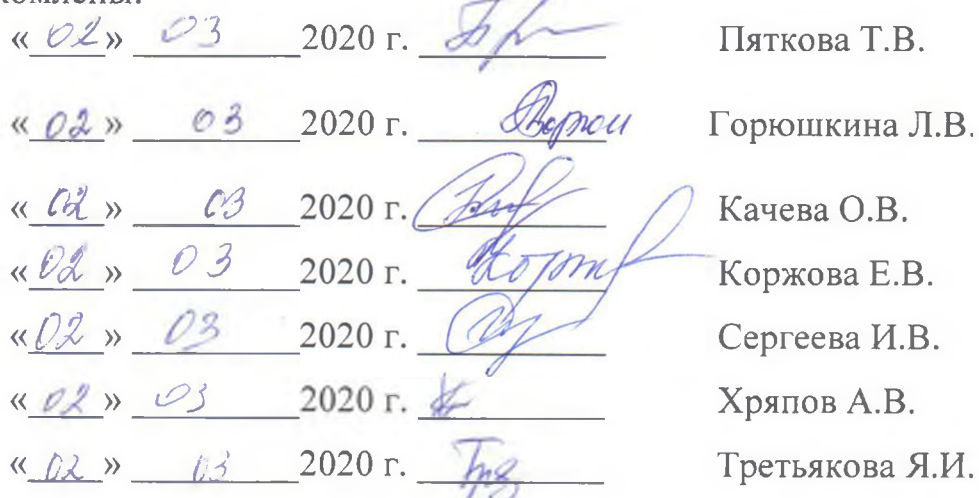 комлены:
«02» 03 2020 г. Пяткова Т.В.
«02» 03 2020 г. Горюшкина Л.В.
«02» 03 2020 г. Качева О.В.
«02» 03 2020 г. Коржова Е.В.
«02» 03 2020 г. Сергеева И.В.
«02» 03 2020 г. Хряпов А.В.
«02» 03 2020 г. Третьякова Я.И.